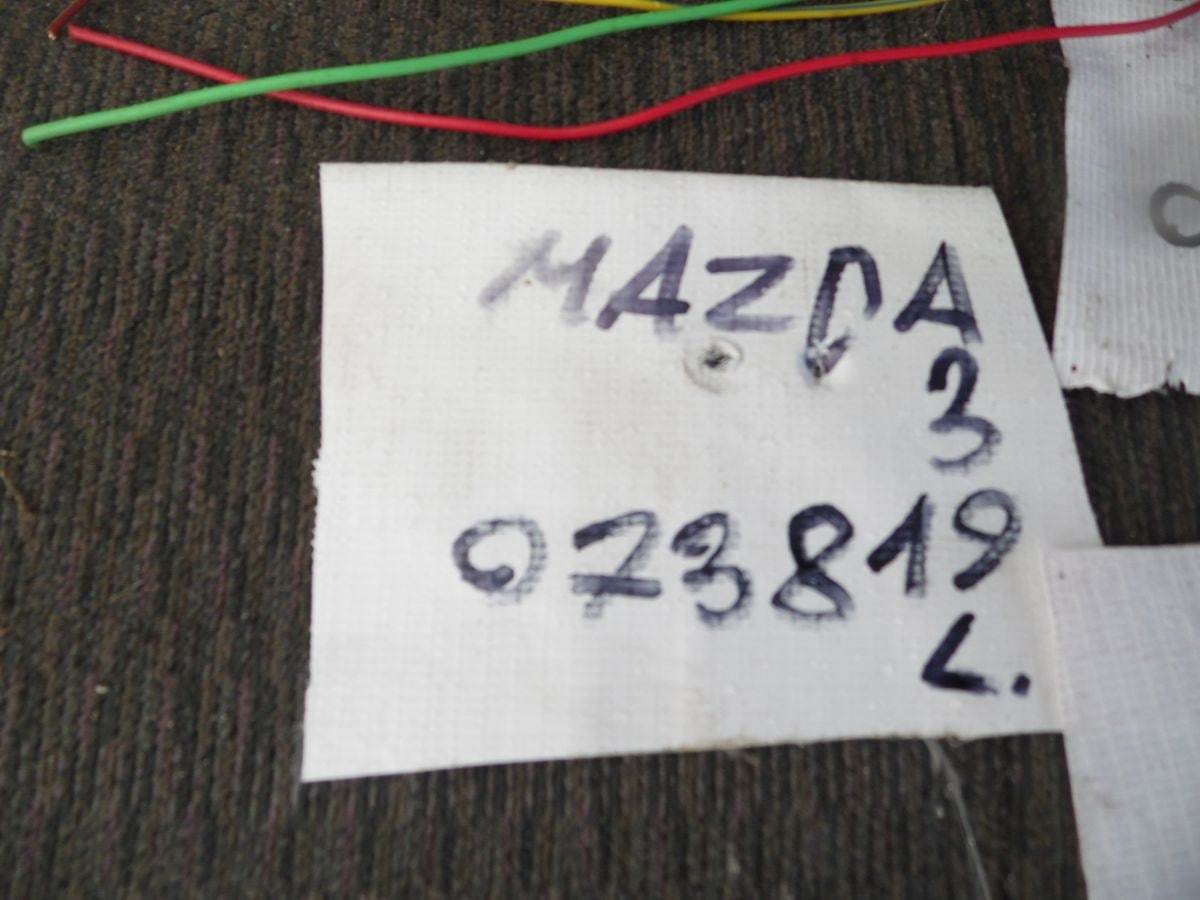 MAZDA
3
073819
L.